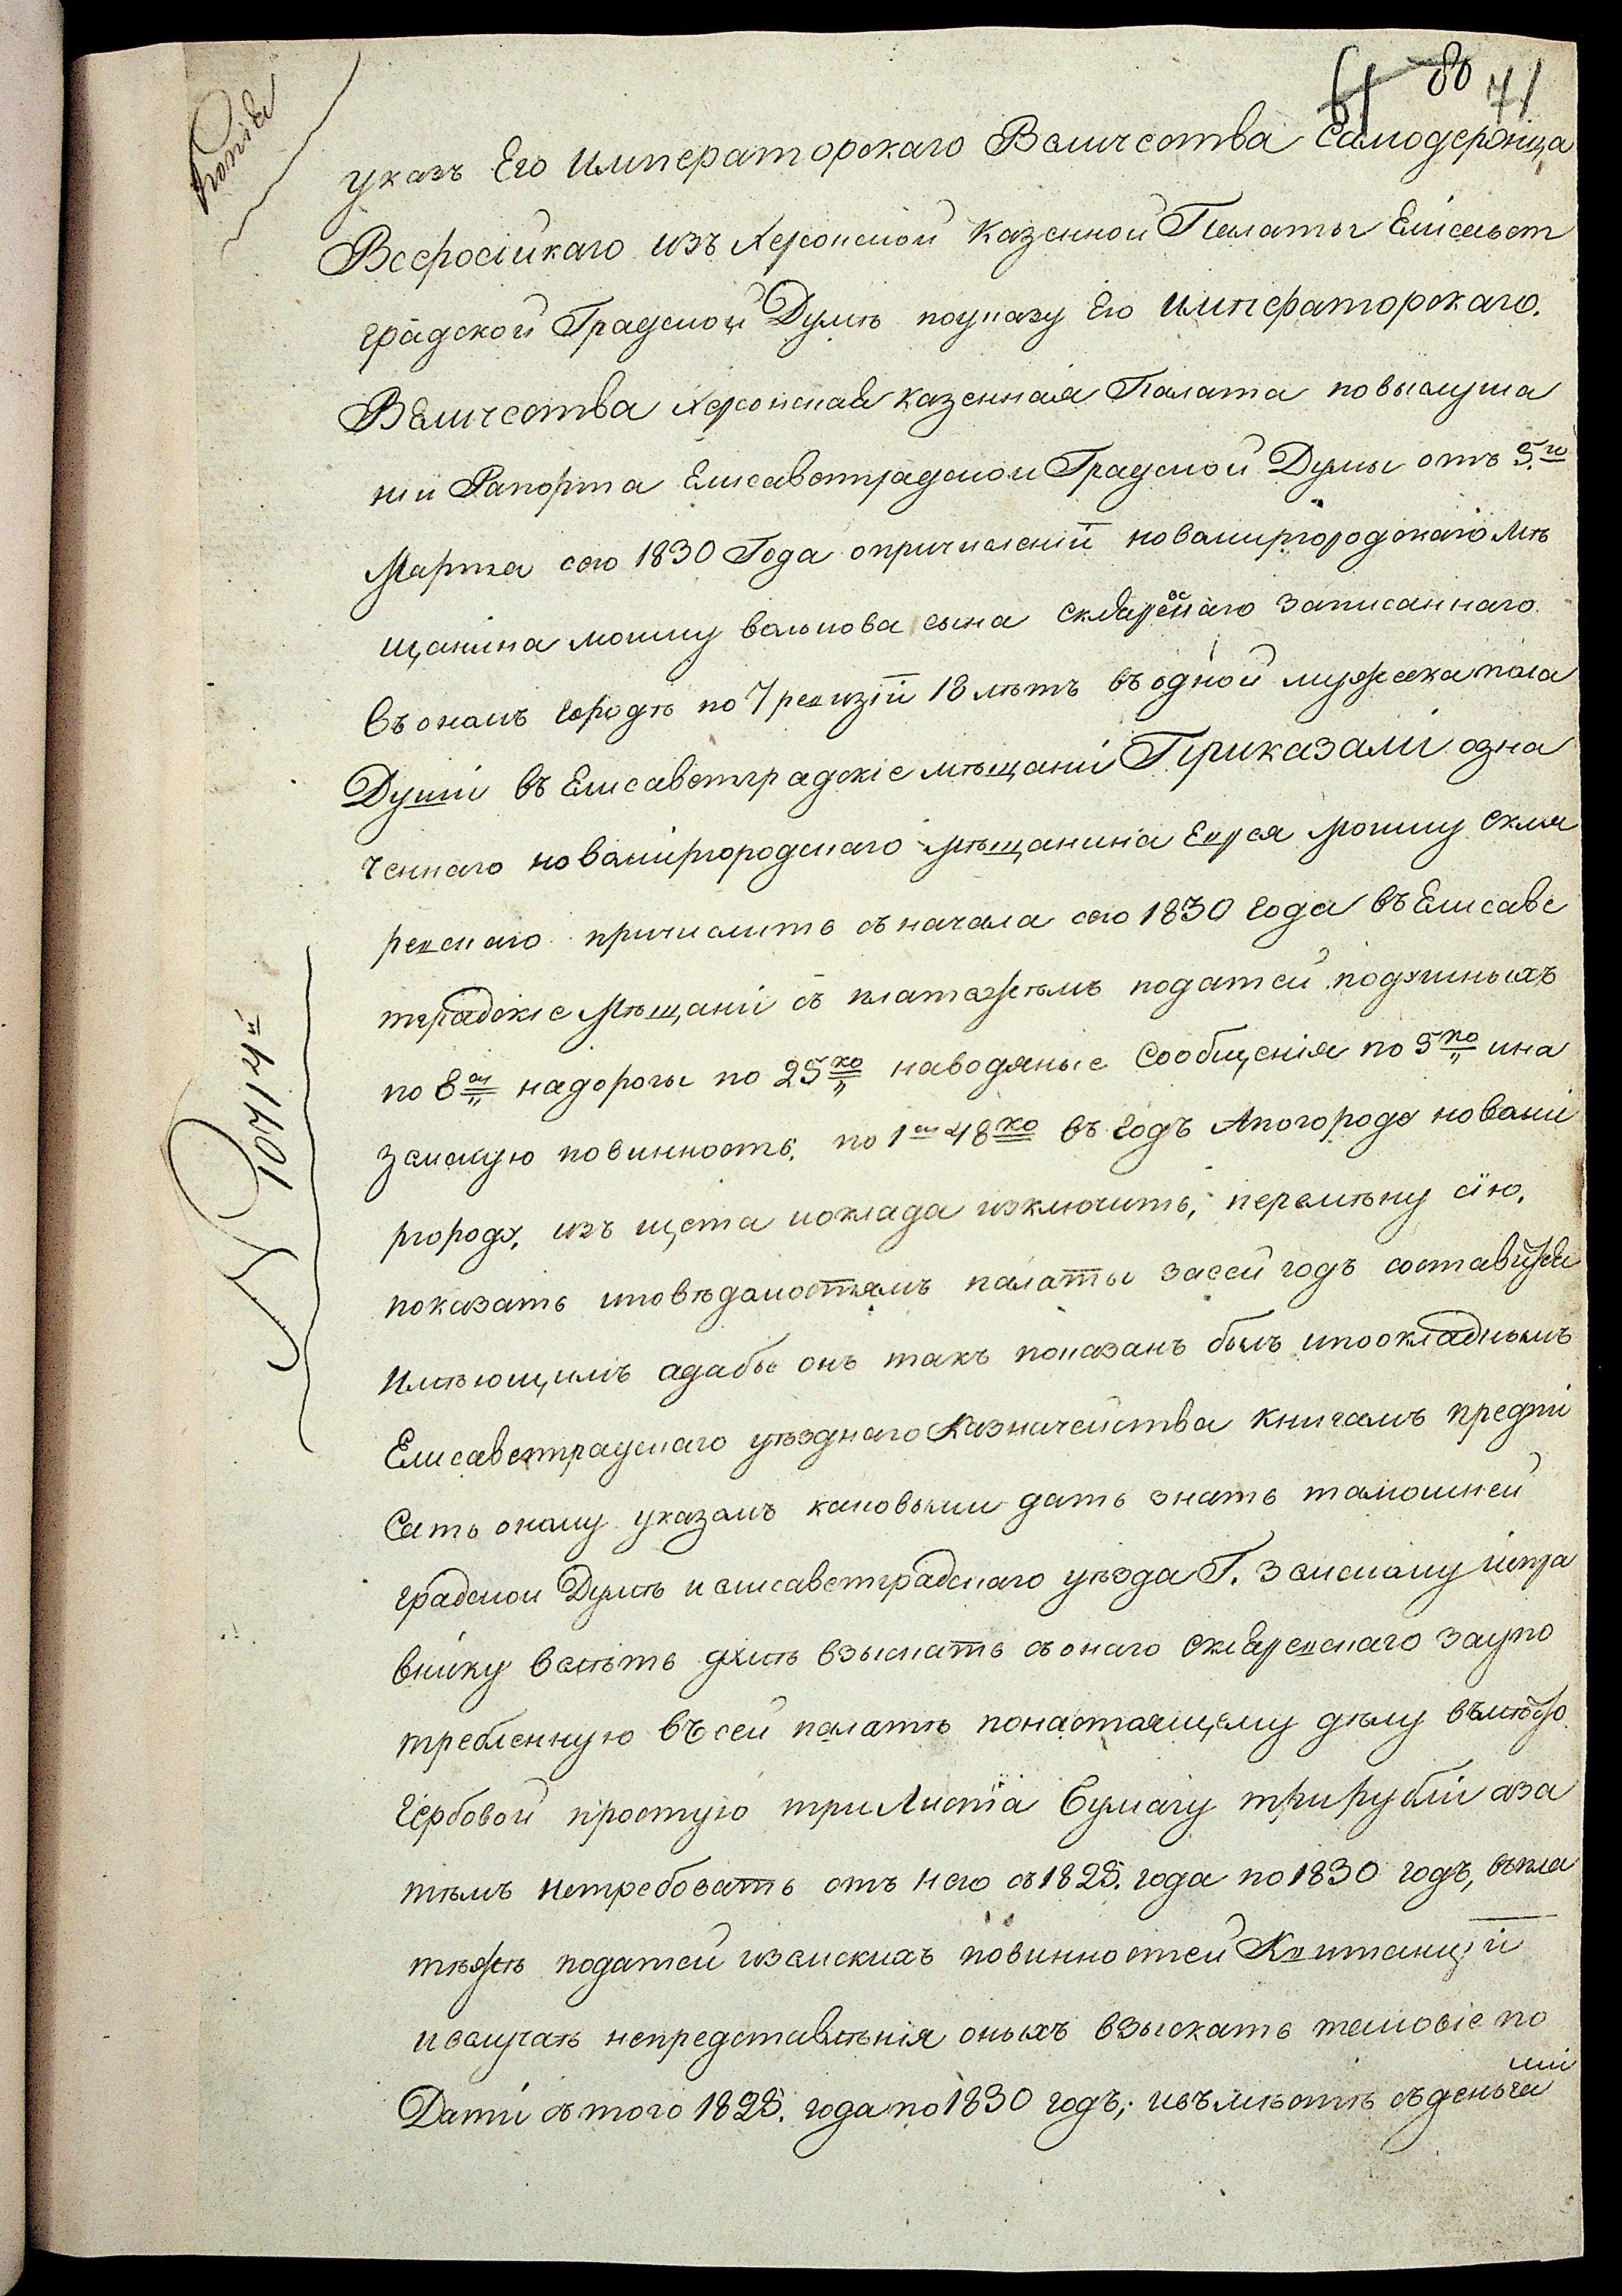 61 80 71
Копія
указъ Его Императорскаго Величества Самодержца
Всеросійкаго изъ Херсонской казенной Палаты Елісавет
градской Градской Думѣ поуказу Его Императорскаго.
Величества Херсонская казенная Палата повыслуша
ніи Рапорта Елисаветградской Градской Думы отъ 5го
Марта сего 1830 Года опричисленіи новомиргородскаго мѣ
щанина мошку волькова сына склярескаго записаннаго
въономъ городѣ по 7 ревизіи 18 лѣтъ въ одной мужеска пола
Душіи въ Елисаветградскіе мѣщані Приказали озна
ченнаго новомиргородскаго мѣщанина Еврея Мошку скля
ревскаго причислить съ начала сего 1830 года въ Елисаве
тградскіе Мѣщані съ платежемъ податей подушныхъ
по 8 ру надороги по 25 ко наводяные Сообщенія по 5 ко ина
земскую повинность. по 1 ру 48 ко въ годъ Апогороду новоми
ргороду, изъ щета иоклада изключить, перемѣну сію.
показать иповѣдомостямъ палаты засей годъ составится
Имѣющимъ адабы онъ такъ показанъ былъ ипоокладнымъ
Елисаветградскаго уѣзднаго Казначейства книгамъ предпи
сать оному указомъ каковыми дать знать тамошней
градской Думѣ и елисаветградскаго уѣзда Г. Земскому испра
внику велѣть думѣ взыскать съ онаго склярескаго заупо
требленную въ сей палатѣ понастоящему дѣлу вмѣсто
гербовой простую три Листа бумагу три рубли аза
тѣмъ нетребовать отъ него съ 1828. года по 1830 годъ, въпла
тѣжѣ податей иземскихъ повинностей Квитанціи
ивслучаѣ непредставленія оныхъ взыскать таковіе по
Дати съ того 1828. года по 1830 годъ; ивъмѣстѣ съденьга
ми
№ 10714й